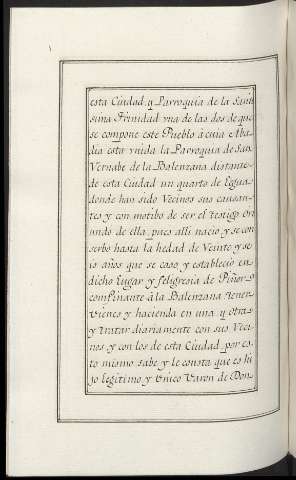 esta Ciudad, y Parroquia de la Santi
sima Trinidad vna de las dos de que
se compone este Pueblo à cuia Aba-
dia esta vnida la Parroquia de San
Vernabe de la Balenzana distante
de esta Ciudad un quarto de Legua,
donde han sido Vecinos sus causan-
tes y con motibo de ser el testigo ori
undo de ella, pues alli nacio, y se con
serbo hasta la hedad de Veinte y se-
is años que se caso, y estableció en
dicho Lugar y feligresia de Piñor, o
confinante à la Balenzana, tener
Vienes y hacienda en una y otra,
y tratar diariamente con sus Veci-
nos y con los de esta Ciudad, por es-
to mismo sabe y le consta que es hi
jo legitimo y Unico Varon de Don